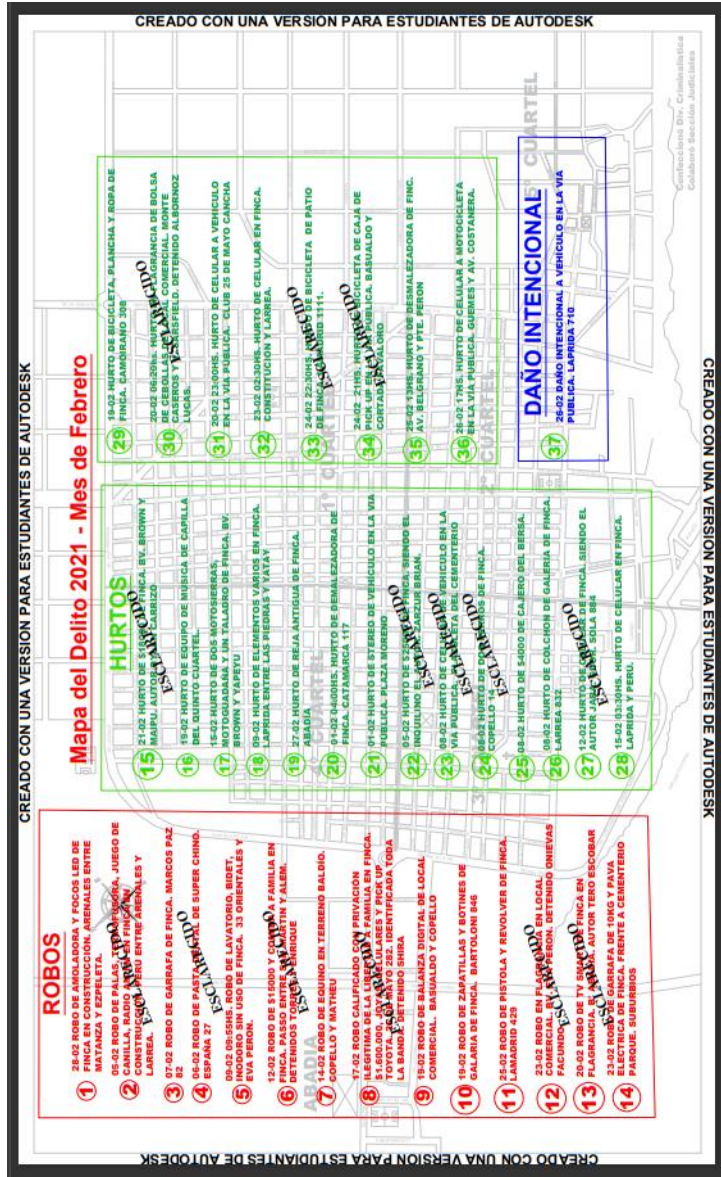 CREADO CON UNA VERSION PARA ESTUDIANTES DE AUTODESK
CREADO CON UNA VERSION PARA ESTUDIANTES DE AUTODESK
Mapa del Delito 2021 - Mes de Febrero
ROBOS
1 28-02 ROBO DE AMOLADORA Y FOCOS LED DE
FINCA EN CONSTRUCCION. ARENALES ENTRE
MATANZA Y EZPELETA.
2 05-02 ROBO DE PALAS, JUEGO DE
CANILLA, RADIO EN FINCA EN
CONSTRUCCION. PERU ENTRE ARENALES Y
LARREA.
ESCLARECIDO
3 07-02 ROBO DE GARRAFA DE FINCA. MARCOS PAZ
82
4 06-02 ROBO DE PASTA DE SUPER CHINO.
ESPAÑA 27
ESCLARECIDO
5 09-02 09:55HS. ROBO DE LAVATORIO, BIDET,
INODORO SIN USO DE FINCA. 33 ORIENTALES Y
EVA PERON.
6 12-02 ROBO DE $15000 Y A FAMILIA EN
FINCA. PASSO ENTRE MARTIN Y ALEM.
DETENIDOS
ESCLARECIDO
7 14-02 ROBO DE EQUINO EN TERRENO BALDIO.
COPELLO Y MATHEU
8 17-02 ROBO CALIFICADO CON PRIVACIÓN
ILEGITIMA DE LA LIBERTAD A FAMILIA EN FINCA.
$1.600.000, CELULARES Y PICK UP
TOYOTA. MAYO 282. IDENTIFICADA TODA
LA BANDA. DETENIDO SHIRA
ESCLARECIDO
9 19-02 ROBO DE BALANZA DIGITAL DE LOCAL
COMERCIAL. BASUALDO Y COPELLO
10 19-02 ROBO DE ZAPATILLAS Y BOTINES DE
GALARIA DE FINCA. BARTOLONI 846
11 25-02 ROBO DE PISTOLA Y REVOLVER DE FINCA.
LAMADRID 429
12 23-02 ROBO EN FLAGRANCIA EN LOCAL
COMERCIAL. PERON. DETENIDO ONIEVAS
FACUNDO
ESCLARECIDO
13 20-02 ROBO DE TV SMART DE FINCA EN
FLAGRANCIA. AUTOR TERO ESCOBAR
ESCLARECIDO
14 23-02 ROBO DE GARRAFA DE 10KG Y PAVA
ELECTRICA DE FINCA. FRENTE A CEMENTERIO
PARQUE. SUBURBIOS
HURTOS
15 21-02 HURTO DE FINCA. BV. BROWN Y
MAIPU. AUTOR CARRIZO
ESCLARECIDO
16 19-02 HURTO DE EQUIPO DE MUSICA DE CAPILLA
DEL QUINTO CUARTEL.
17 25-02 HURTO DE DOS MOTOSIERRAS,
MOTOGUADAÑA Y UN TALADRO DE FINCA. BV.
BROWN Y YAPEYU
18 09-02 HURTO DE ELEMENTOS VARIOS EN FINCA.
LAPRIDA ENTRE LAS PIEDRAS Y YATAY
19 27-02 HURTO DE REJA ANTIGUA DE FINCA.
ABADIA
20 01-02 04:00HS. HURTO DE DEMALEZADORA DE
FINCA. CATAMARCA 117
21 01-02 HURTO DE STEREO DE VEHÍCULO EN LA VIA
PÚBLICA. PLAZA MORENO
22 05-02 HURTO DE FINCA, SIENDO EL
INQUILINO EL BRIAN.
ESCLARECIDO
23 08-02 HURTO DE VEHÍCULO EN LA
VIA PÚBLICA. DEL CEMENTERIO
ESCLARECIDO
24 06-02 HURTO DE DE FINCA.
COPELLO
ESCLARECIDO
25 08-02 HURTO DE $4000 DE CAJERO DEL BERSA.
26 08-02 HURTO DE COLCHON DE GALERIA DE FINCA.
LARREA 832
27 12-02 HURTO DE DE FINCA, SIENDO EL
AUTOR SOLA 884
ESCLARECIDO
28 15-02 03:30HS. HURTO DE CELULAR EN FINCA.
LAPRIDA Y PERÚ.
29 19-02 HURTO DE BICICLETA, PLANCHA Y ROPA DE
FINCA. CAMOIRANO 308
30 20-02 06:20hs. HURTO EN FLAGRANCIA DE BOLSA
DE CEBOLLAS LOCAL COMERCIAL. MONTE
CASEROS Y DETENIDO ALBORNOZ
LUCAS.
ESCLARECIDO
31 20-02 23:00HS. HURTO DE CELULAR A VEHICULO
EN LA VIA PÚBLICA. CLUB 25 DE MAYO CANCHA
32 23-02 02:30HS. HURTO DE CELULAR EN FINCA.
CONSTITUCION Y LARREA.
33 24-02 22:30HS. HURTO DE BICICLETA DE PATIO
DE FINCA. 1111.
ESCLARECIDO
34 24-02 21HS. HURTO DE BICICLETA DE CAJA DE
PICK UP EN VIA PÚBLICA. BASUALDO Y
CORTADA STAVALORO
ESCLARECIDO
35 25-02 13HS. HURTO DE DESMALEZADORA DE FINC.
AV. BELGRANO Y PTE. PERON
36 26-02 17HS. HURTO DE CELULAR A MOTOCICLETA
EN LA VIA PUBLICA. GUEMES Y AV. COSTANERA.
DAÑO INTENCIONAL
37 26-02 DAÑO INTENCIONAL A VEHÍCULO EN LA VIA
PUBLICA. LAPRIDA 710
ABADIA
4° CUARTEL
1° CUARTEL
3°
2° CUARTEL
5° CUARTEL
Confeccionó Div. Criminalística
Colaboró Sección Judiciales
CREADO CON UNA VERSION PARA ESTUDIANTES DE AUTODESK
CREADO CON UNA VERSION PARA ESTUDIANTES DE AUTODESK